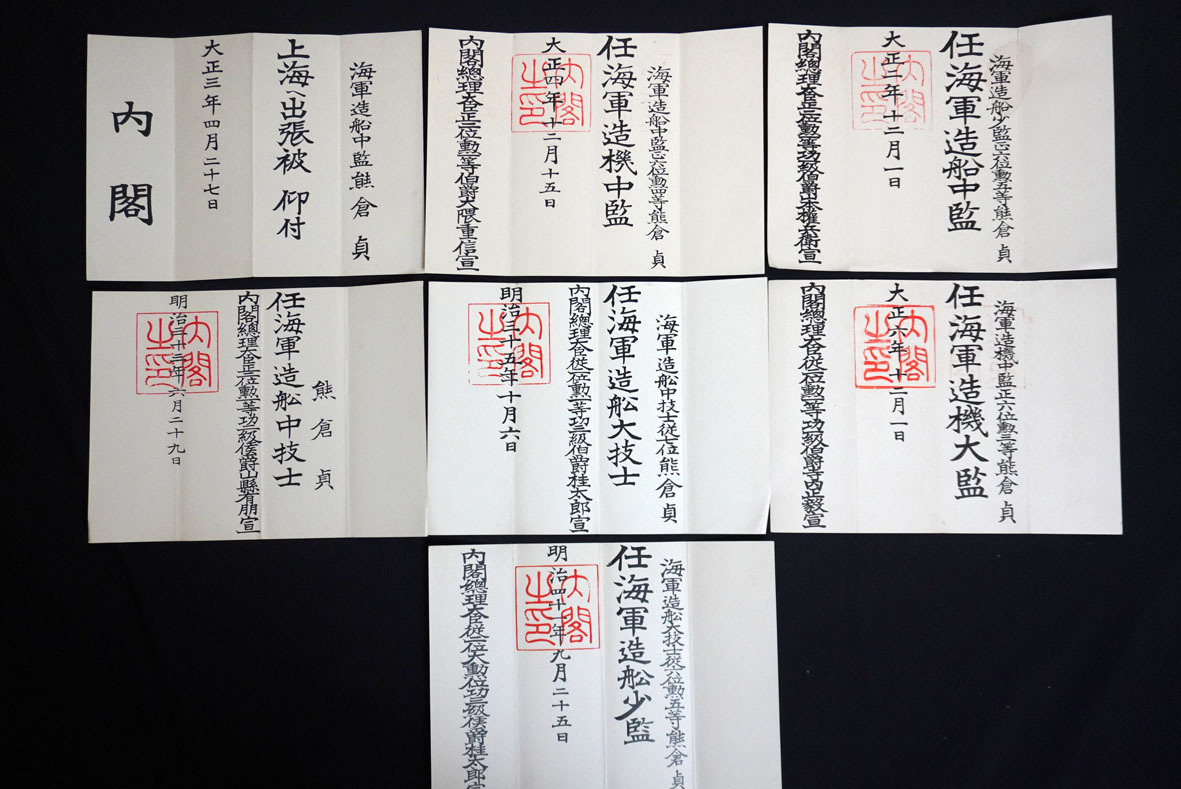 海軍造船少監正六位勲五等熊倉貞
任海軍造船中監
大正二年十二月一日
内閣總理大臣正二位勲一等功二級伯爵山本權兵衛宣
内閣之印
海軍造船中監正六位勲四等熊倉貞
任海軍造機中監
大正四年十二月十五日
内閣總理大臣正二位勲一等伯爵大隈重信宣
内閣之印
海軍造船中監熊倉貞
上海へ出張被仰付
大正三年四月二十七日
内閣
海軍造機中監正六位勲三等熊倉貞
任海軍造機大監
大正六年十二月一日
内閣總理大臣從二位勲一等功一級伯爵寺内正毅宣
内閣之印
海軍造舩中技士從七位熊倉貞
任海軍造舩大技士
内閣總理大臣從二位勲一等功三級伯爵桂太郎宣
明治三十五年十月六日
内閣之印
熊倉貞
任海軍造舩中技士
内閣總理大臣正二位勲一等功二級侯爵山縣有朋宣
明治三十二年六月二十九日
内閣之印
海軍造舩大技士從六位勲五等熊倉貞
任海軍造舩少監
明治四十一年九月二十五日
内閣總理大臣從二位大勲位功三級侯爵桂太郎宣
内閣之印